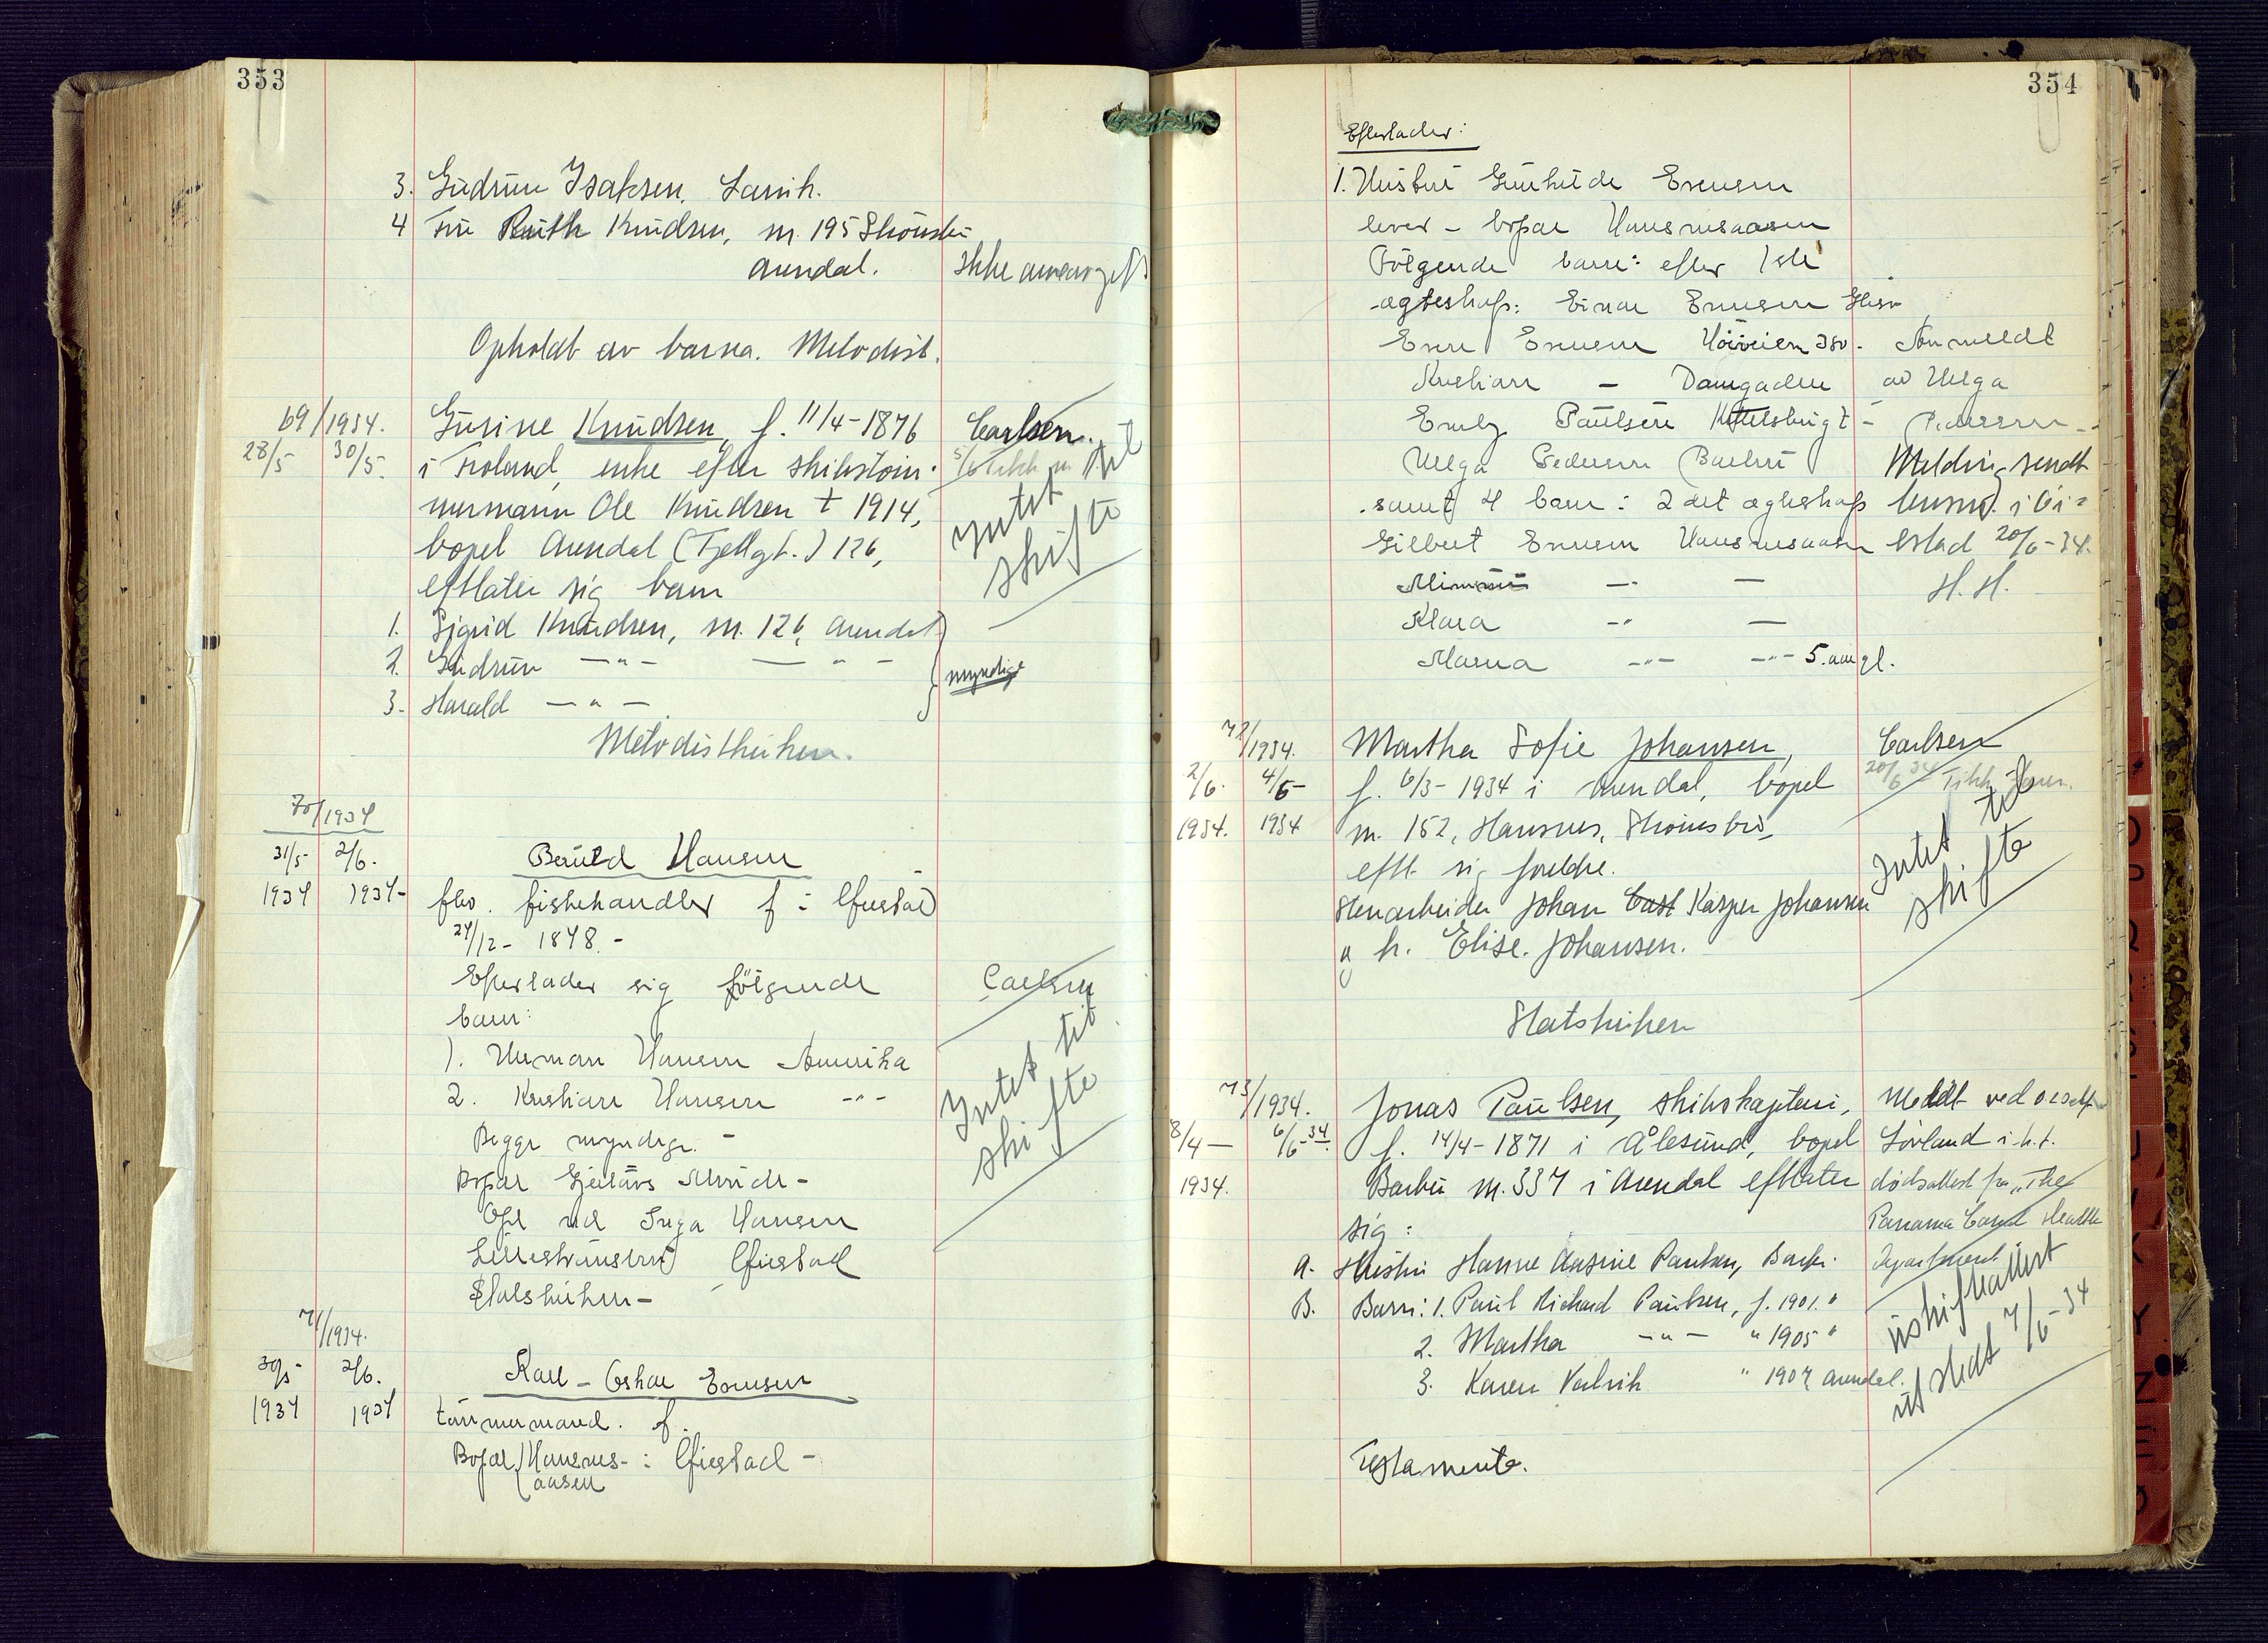 353
3. Gudrun Isaksen, Larvik.
4 Fru Ruth Knudsen, m. 195 Strömsbu
Arendal. Ikke arveavgift
Opholdt av barna. Metodist.
69/1934. Gusine Knudsen, f. 11/4-1876 Carlsen.
28/5 30/5. i Froland, enke efter skibstøm-
mermann Ole Knudsen † 1914, Intet til
bopel Arendal (Tjellgt.) 126, skifte
efterlater sig barn
1. Sigrid Knudsen, m. 126, Arendal
2. Gudrun — " — — " — myndige
3. Harald — " —
Metodistkirken.
70/1934
31/5 2/6. Hansen
1934 1934- fhv. fiskehandler f i Øiestad
24/12- 1848.-
Efterlader sig følgende Carlsen
barn:
1. Herman Hansen Amerika Intet til
2. Kristian Hansen -"- skifte
Begge myndige. -
Bopæl Minde -
Opl ved Inga Hansen
Øiestad
Statskirken -
71/1934.
30/5- 2/6. Karl - Oskar Evensen
1934 1934 tømmermand. f.
Bopæl Hansnes- i Øiestad -
aasen
354
Efterlader:
1. Hustru Gunhilde Evensen
lever - bopæl Hansnesaasen
Følgende barn: efter 1ste
ægteskap: Einar Evensen Hisø
Evensen Höiveien 380. Anmeldt
Kristian — Damgaden av Helga
Emly Paulsen Kittelsbugt - Pedersen -
Helga Pedersen Barbu Melding sendt
samt 4 barn i 2det ægteskap lensm. i Öi=
Gilbert Evensen Hansnesaasen estad 20/6-34.
— — H. H.
Klara -"- —
Marna -"- -"- 5. aar gl.
72/1934. Martha Sofie Johansen, Carlsen
2/6. 4/6- f. 6/3- 1934 i Arendal, bopel
1934. 1934 m. 152, Hansnes, Strömsbu, Intet til
eftl. sig foreldre. skifte
Stenarbeider Johan Cast Kasper Johansen
og h. Elise. Johansen.
Statskirken
73/1934. Jonas Paulsen, skibskaptein, Meddt ved o.r.sakf.
8/4 — 6/6-34. f. 14/4-1871 i Ålesund, bopel Lövland i h.t.
1934. Barbu m. 337 i Arendal efterlater dödsattest fra "The
sig: Panama Canal Health
A. Hustru Hanne Aasine Paulsen, Barbu. Department
B. Barn: 1. Paul Richard Paulsen, f. 1901. " uskifteattest
2. Martha — " — " 1905 " utstedt 7/6-34
3. Karen " 1907, Arendal.
Testamente.